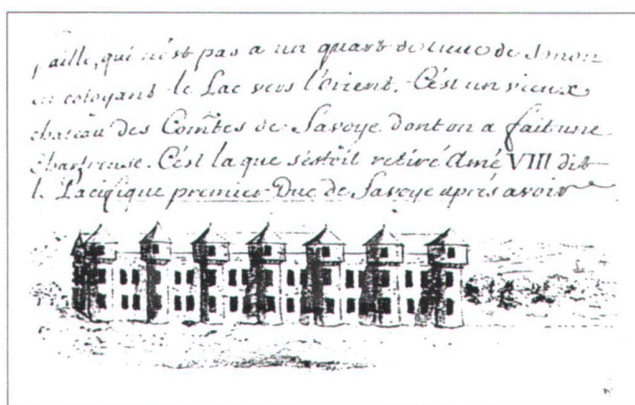 paille, qui n'est pas a un quart de lieue de Tonon
en cotoyant le Lac vers l'orient. C'est un vieux
chateau des Comtes de Savoye dont on a fait une
chartreuse. C'est la que s'estoit retiré Amé VIII dit
le Pacifique premier Duc de Savoye aprés avoir